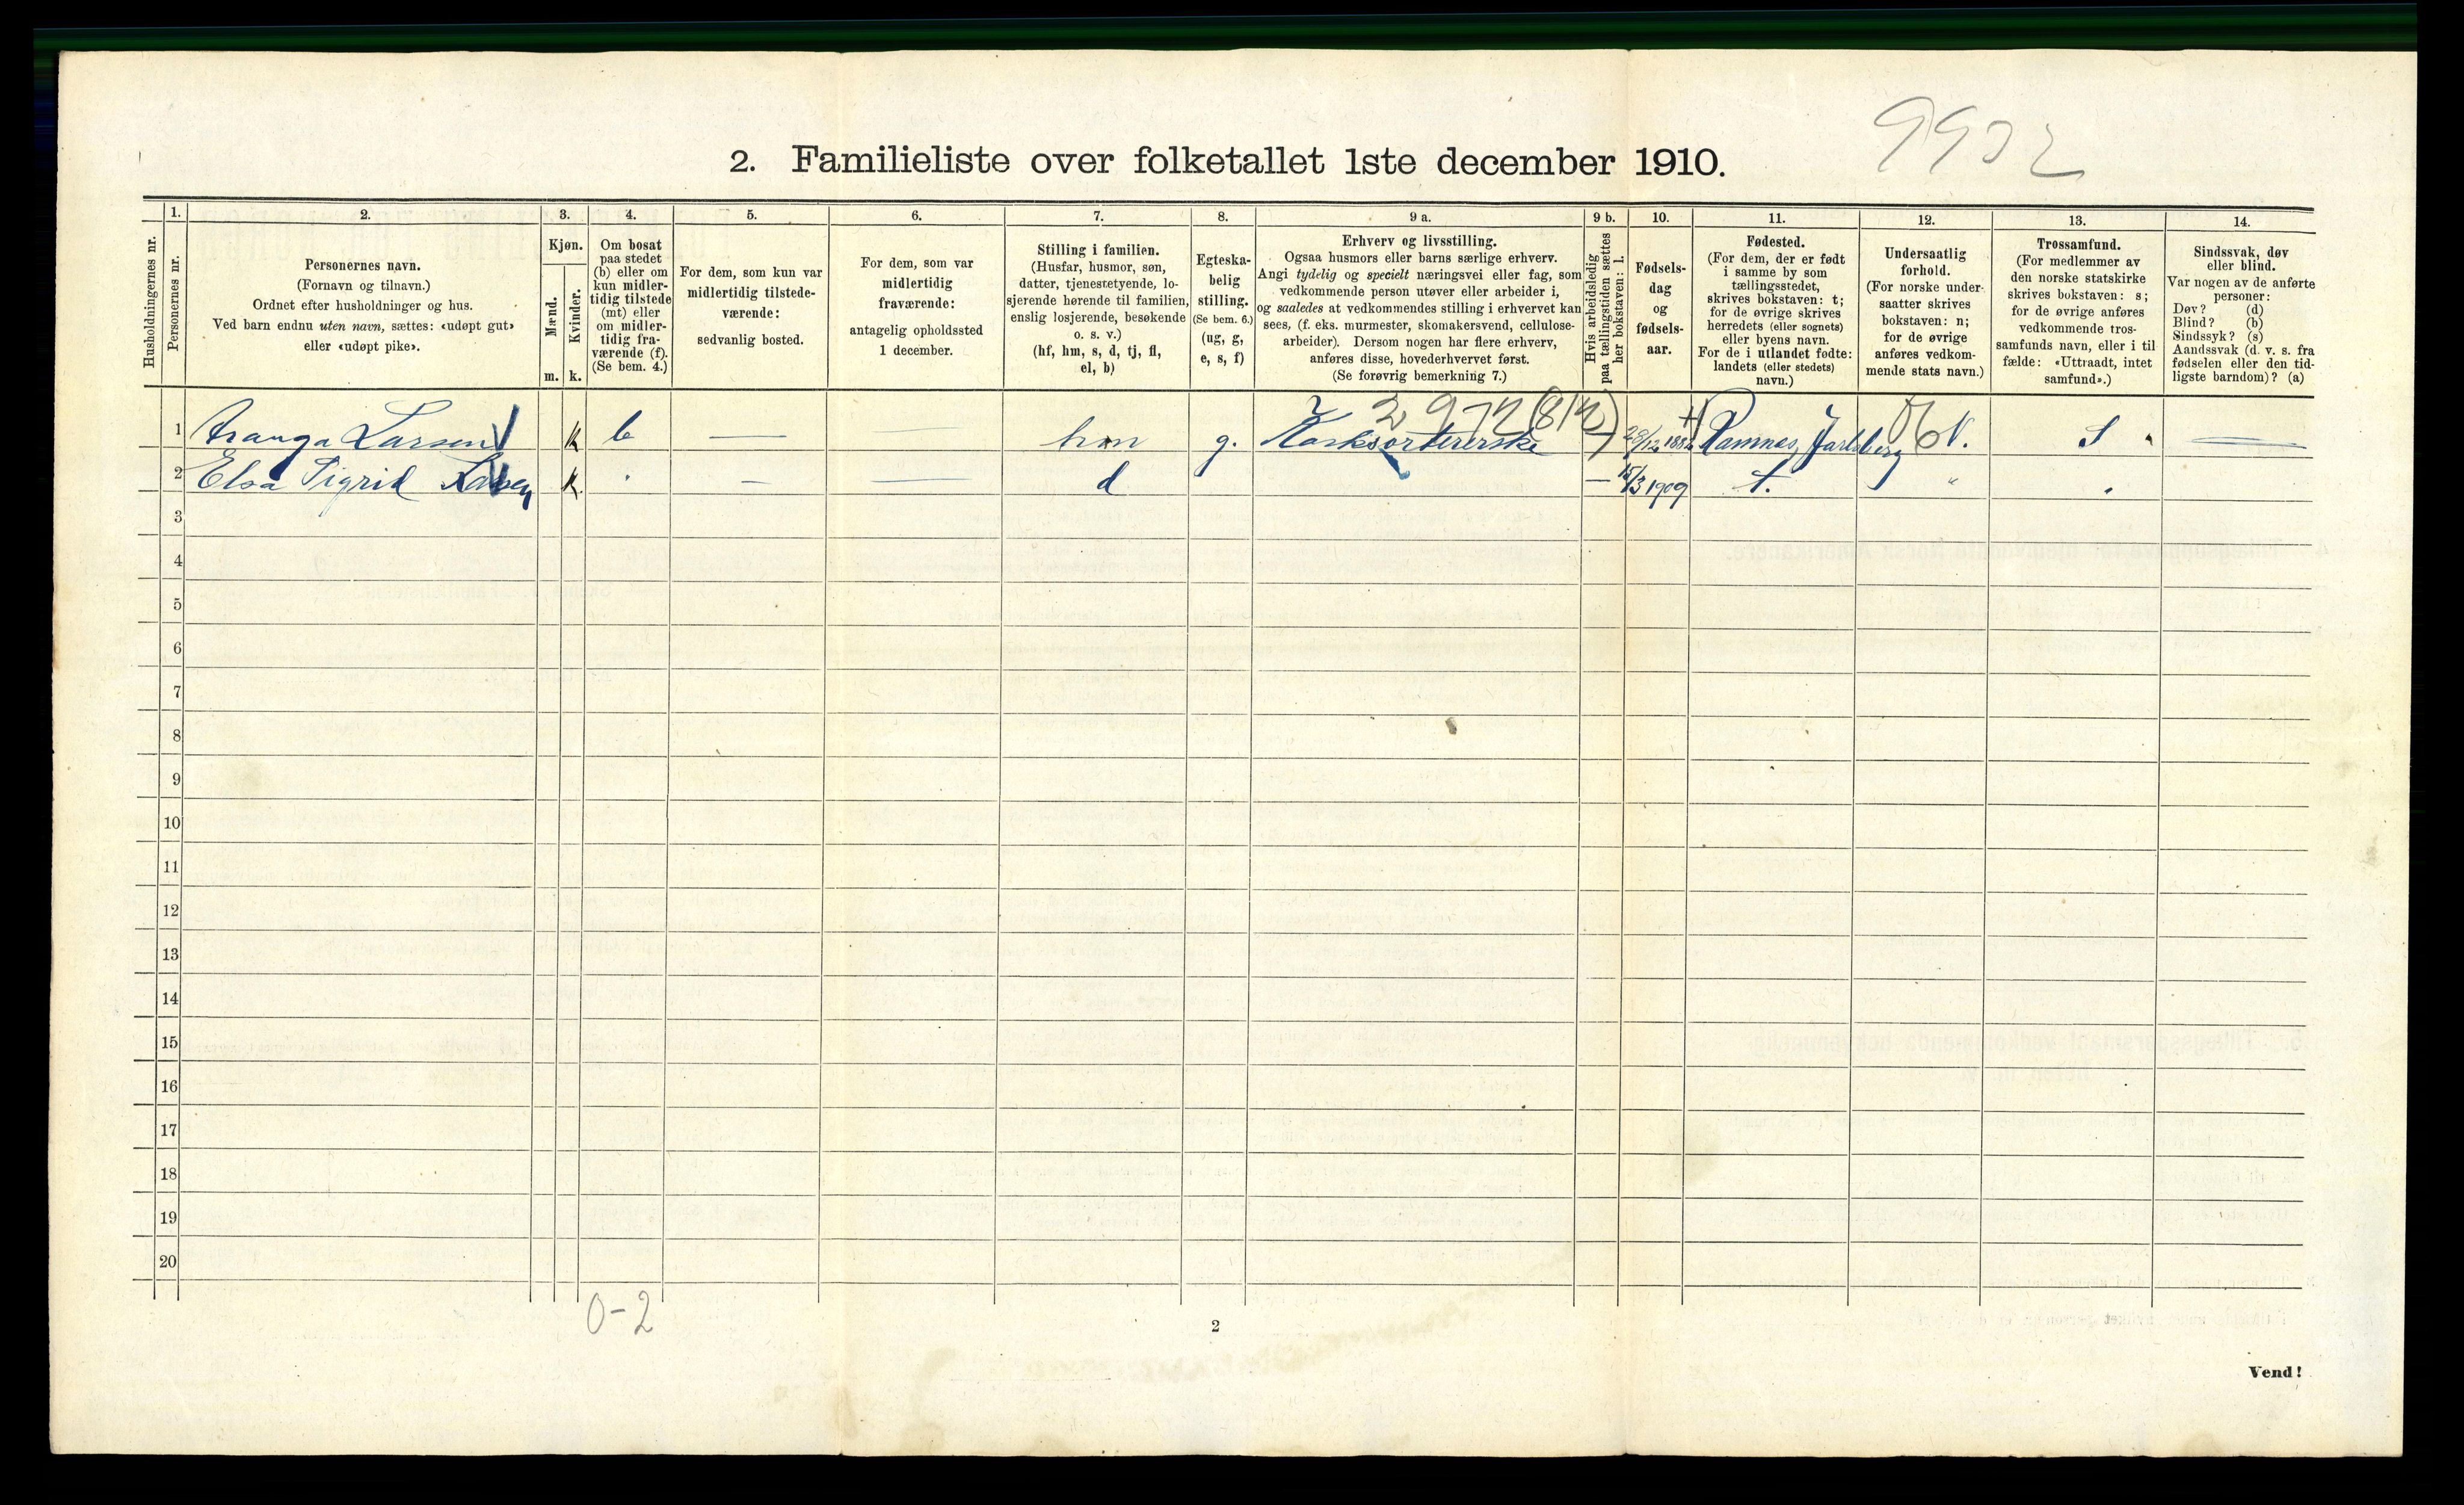 9932
2. Familieliste over folketallet 1ste december 1910.
Husholdningernes nr.
1. 2. 3. 4. 5. 6. 7. 8. 9 a. 9 b. 10. 11. 12. 13. 14.
Personernes nr.
Personernes navn.
(Fornavn og tilnavn.)
Ordnet efter husholdninger og hus.
Ved barn endnu uten navn, sættes: «udøpt gut»
eller «udøpt pike».
Kjøn.
Mænd.
Kvinder.
m. k.
Om bosat
paa stedet
(b) eller om
kun midler-
tidig tilstede
(mt) eller
om midler-
tidig fra-
værende (f).
(Se bem. 4.)
For dem, som kun var
midlertidig tilstede-
værende:
sedvanlig bosted.
For dem, som var
midlertidig
fraværende:
antagelig opholdssted
1 december.
Stilling i familien.
(Husfar, husmor, søn,
datter, tjenestetyende, lo-
sjerende hørende til familien,
enslig losjerende, besøkende
o. s. v.)
(hf, hm, s, d, tj, fl,
el, b)
Egteska-
belig
stilling.
(Se bem. 6.)
(ug, g,
e, s, f)
Erhverv og livsstilling.
Ogsaa husmors eller barns særlige erhverv.
Angi tydelig og specielt næringsvei eller fag, som
vedkommende person utøver eller arbeider i,
og saaledes at vedkommendes stilling i erhvervet kan
sees, (f. eks. murmester, skomakersvend, cellulose-
arbeider). Dersom nogen har flere erhverv,
anføres disse, hovederhvervet først.
(Se forøvrig bemerkning 7.)
Hvis arbeidsledig
paa tællingstiden sættes
her bokstaven: l.
Fødsels-
dag
og
fødsels-
aar.
Fødested.
(For dem, der er født
i samme by som
tællingsstedet,
skrives bokstaven: t;
for de øvrige skrives
herredets (eller sognets)
eller byens navn.
For de i utlandet fødte:
landets (eller stedets)
navn.)
Undersaatlig
forhold.
(For norske under-
saatter skrives
bokstaven: n;
for de øvrige
anføres vedkom-
mende stats navn.)
Trossamfund.
(For medlemmer av
den norske statskirke
skrives bokstaven: s;
for de øvrige anføres
vedkommende tros-
samfunds navn, eller i til
fælde: «Uttraadt, intet
samfund».)
Sindssvak, døv
eller blind.
Var nogen av de anførte
personer:
Døv? (d)
Blind? (b)
Sindssyk? (s)
Aandssvak (d. v. s. fra
fødselen eller den tid-
ligste barndom)? (a)
1 Larsen k b — — hm g. Korksortererske — 28/12 1882 Ramnes, Jarlsberg N. S —
2 Elsa Sigrid Larsen k. — — d — 15/3 1909 t. "
3
4
5
6
7
8
9
10
11
12
13
14
15
16
17
18
19
20
0-2
2
Vend!